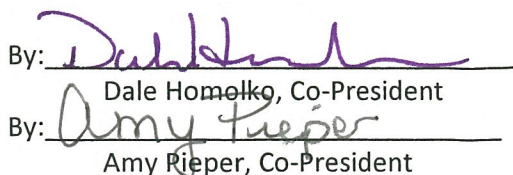 By: Dale Homolko
Dale Homolko, Co-President
By: Amy Pieper
Amy Pieper, Co-President